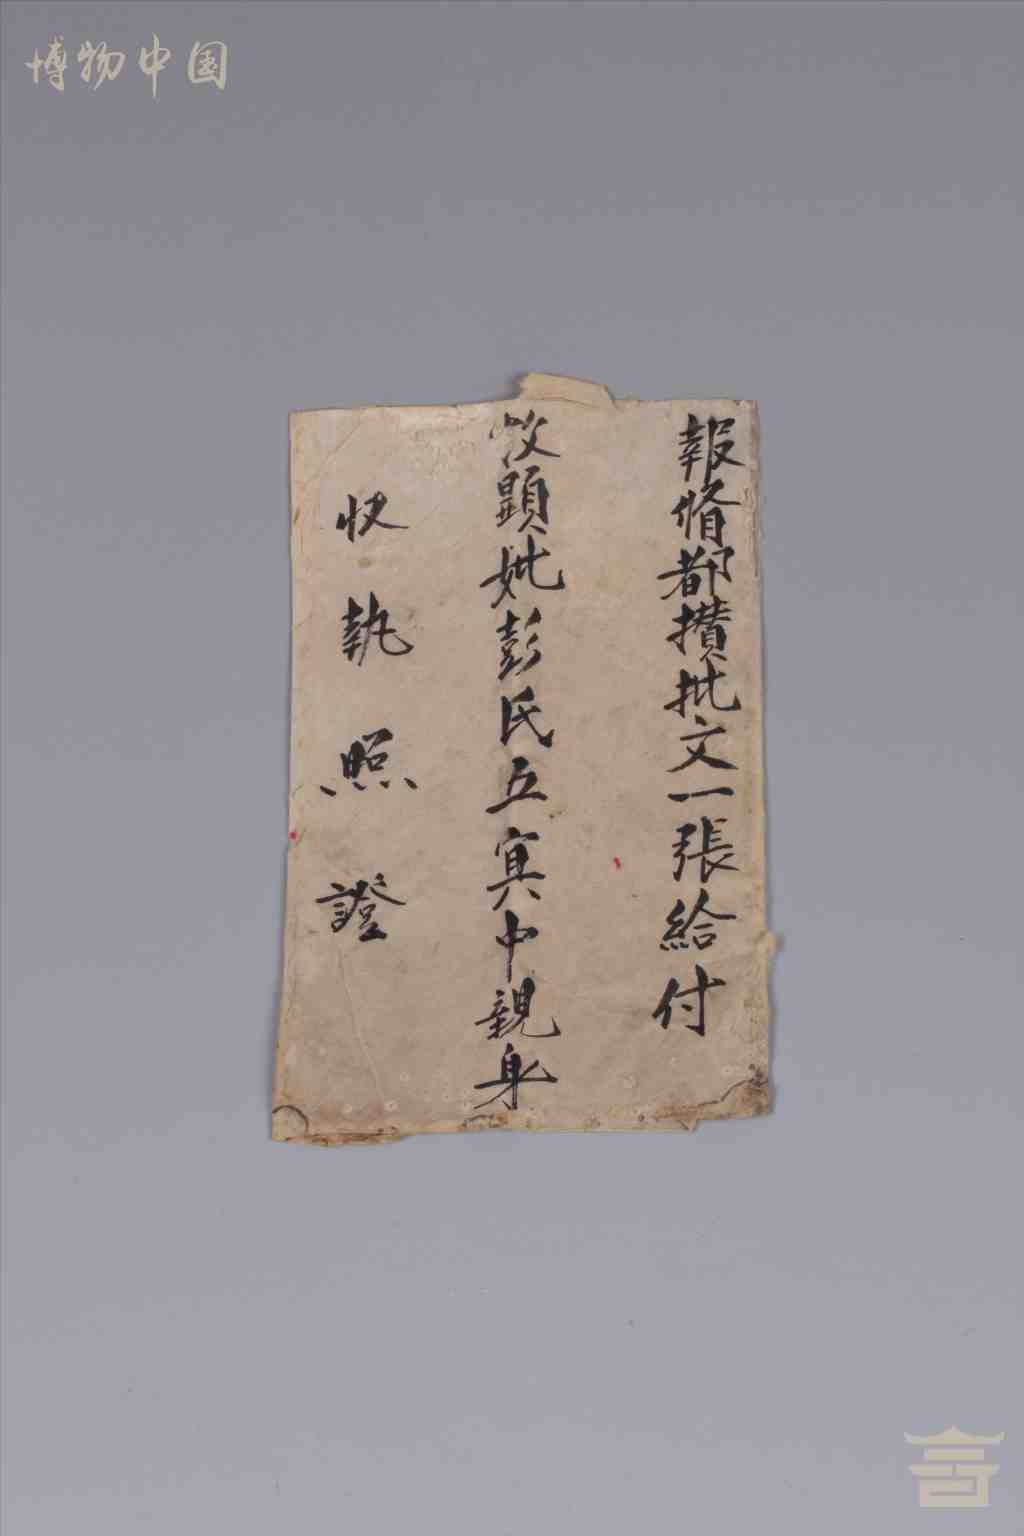 博物中国
報脩都攢批文一張給付
故顕妣彭氏五寘中親身
收執照證